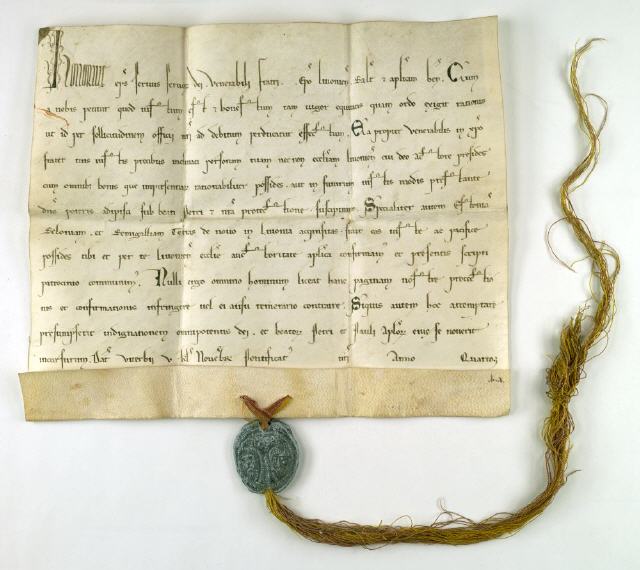 Honorius ep̄s servus servoꝝ dei. Venerabili fratri .. Ep̄o Livonien̄ Salt̄ & aplicam ben̄. Cum
a nobis petitur quod iustum est & honestum tam vigor equitatis quam ordo exigit rationis
ut id per sollicitudinem officij nr̄i ad debitum perducatur effectum. Ea propter venerabilis in xp̄o
frater tuis iustis precibus inclinati personam tuam necnon ecclīam Livonien̄ cui deo auctore presides
cum omnibus bonis que impresentiarum rationabiliter possides. aut in futurum iustis modis prestante
dn̄o poteris adipisci sub beati Petri & nr̄a protectione suscipimus. Specialiter autem
Seloniam. et Semigalliam Terras de novo in Livonia acquisitas sicut eas iuste ac pacifice
possides tibi et per te Livonien̄ ecclīe auctoritate aplica confirmam̄ et presentis scripti
patrocinio communimus. Nulli ergo omnino hominum liceat hanc paginam nostre protectio
nis et confirmationis infringere vel ei ausu temerario contraire. Siquis autem hoc attemptare
presumpserit indignationem omnipotentis dei. et beatoꝝ Petri et Pauli Aplōꝝ eius se noverit
incursurum. Dat̄ Viterbii v kl̄ Novēbr̄ Pontificat̄ nr̄i Anno Quarto